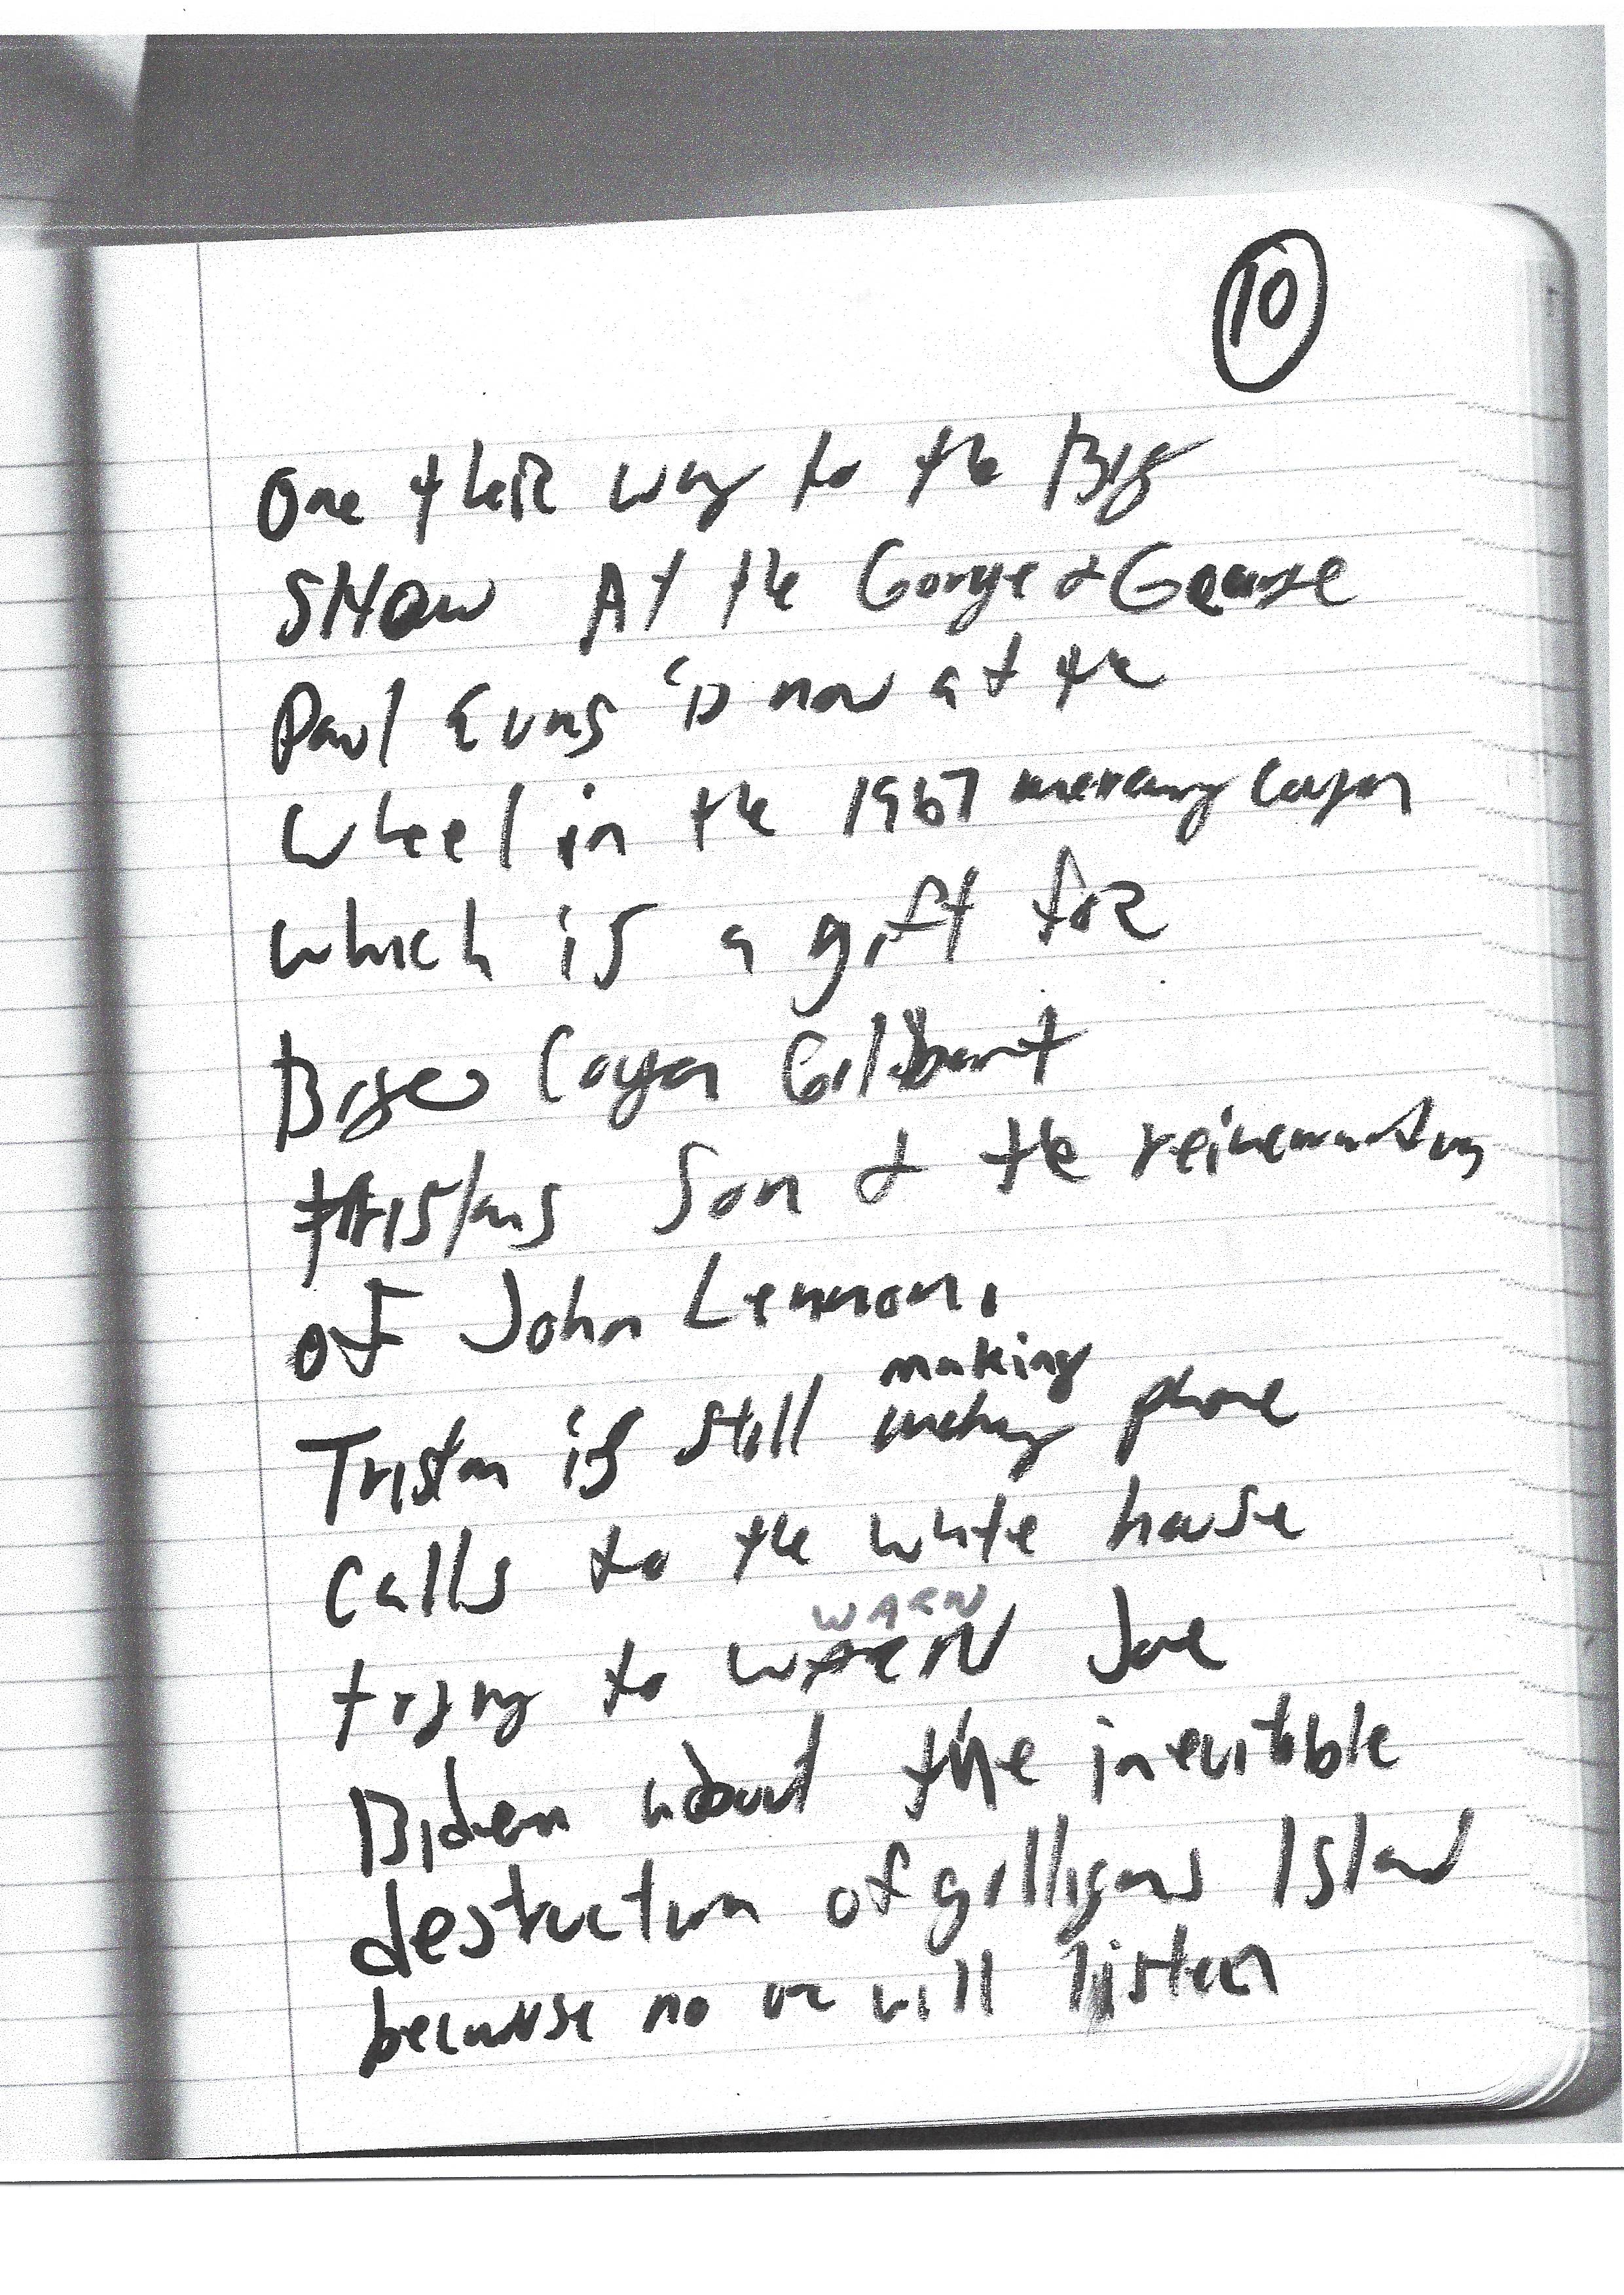 10
One their way to the Big
SHOW At the Gorge & George
Paul Evans is now at the
Wheel in the 1967 mercury Cougar
which is a gift for
Cougar Gilbert
tristans Son & the reincarnation
of John Lennon.
making
Tristan is still making phone
calls to the white house
WARN
trying to WARN Joe
Biden about the inevitable
destruction of gilligans Island
because no one will listen